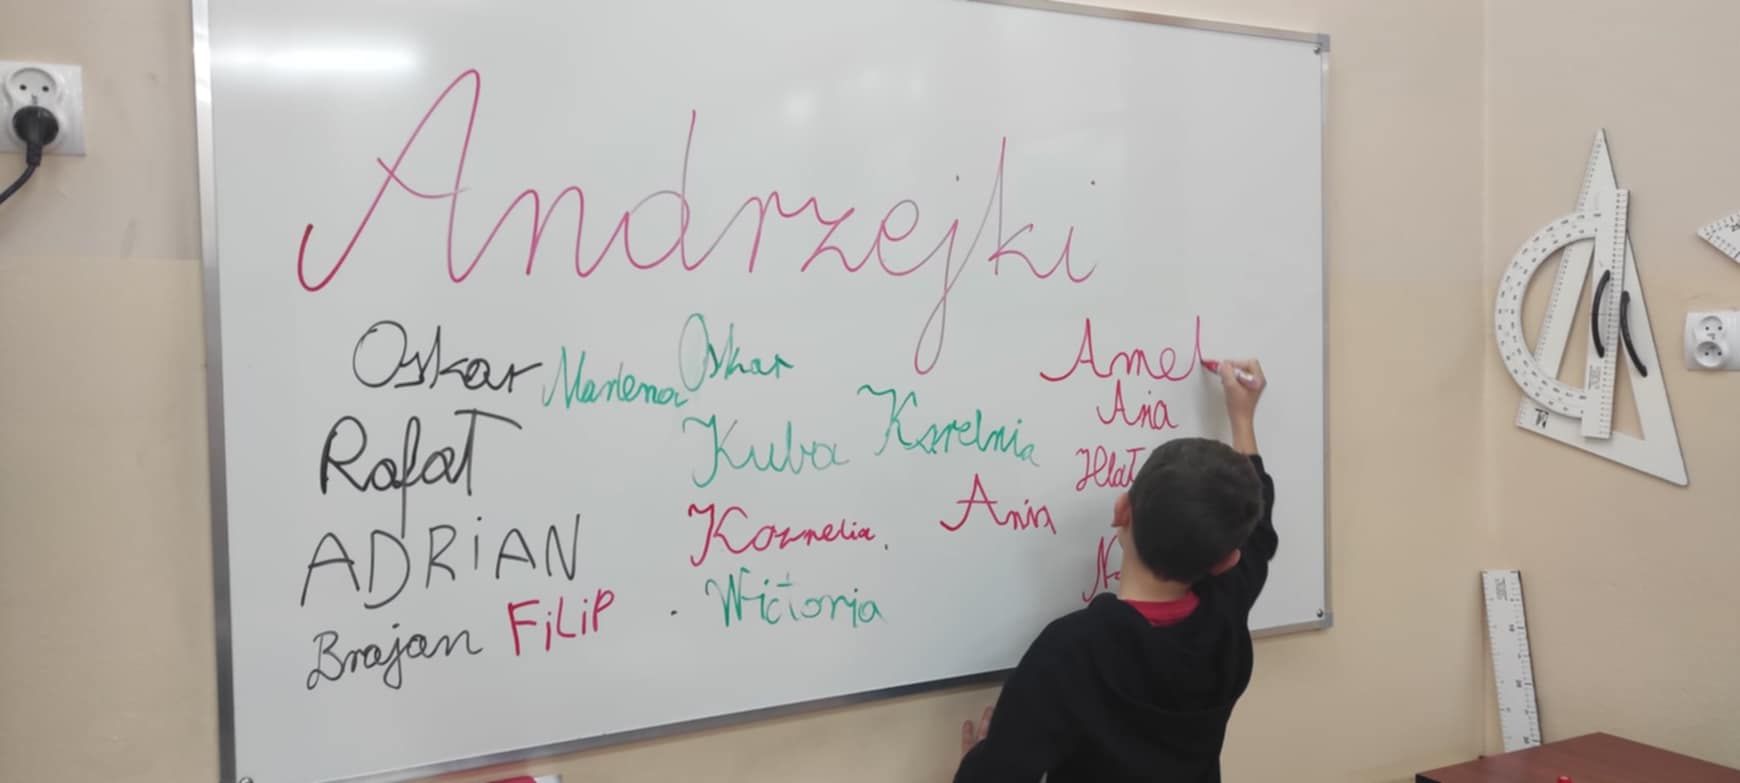 Andrzejki
Oskar Marlena Oskar Amel
Rafał Kuba Karelnia Ania
ADRiAN Kornelia. Ania
Brajan FiLiP Wictoria